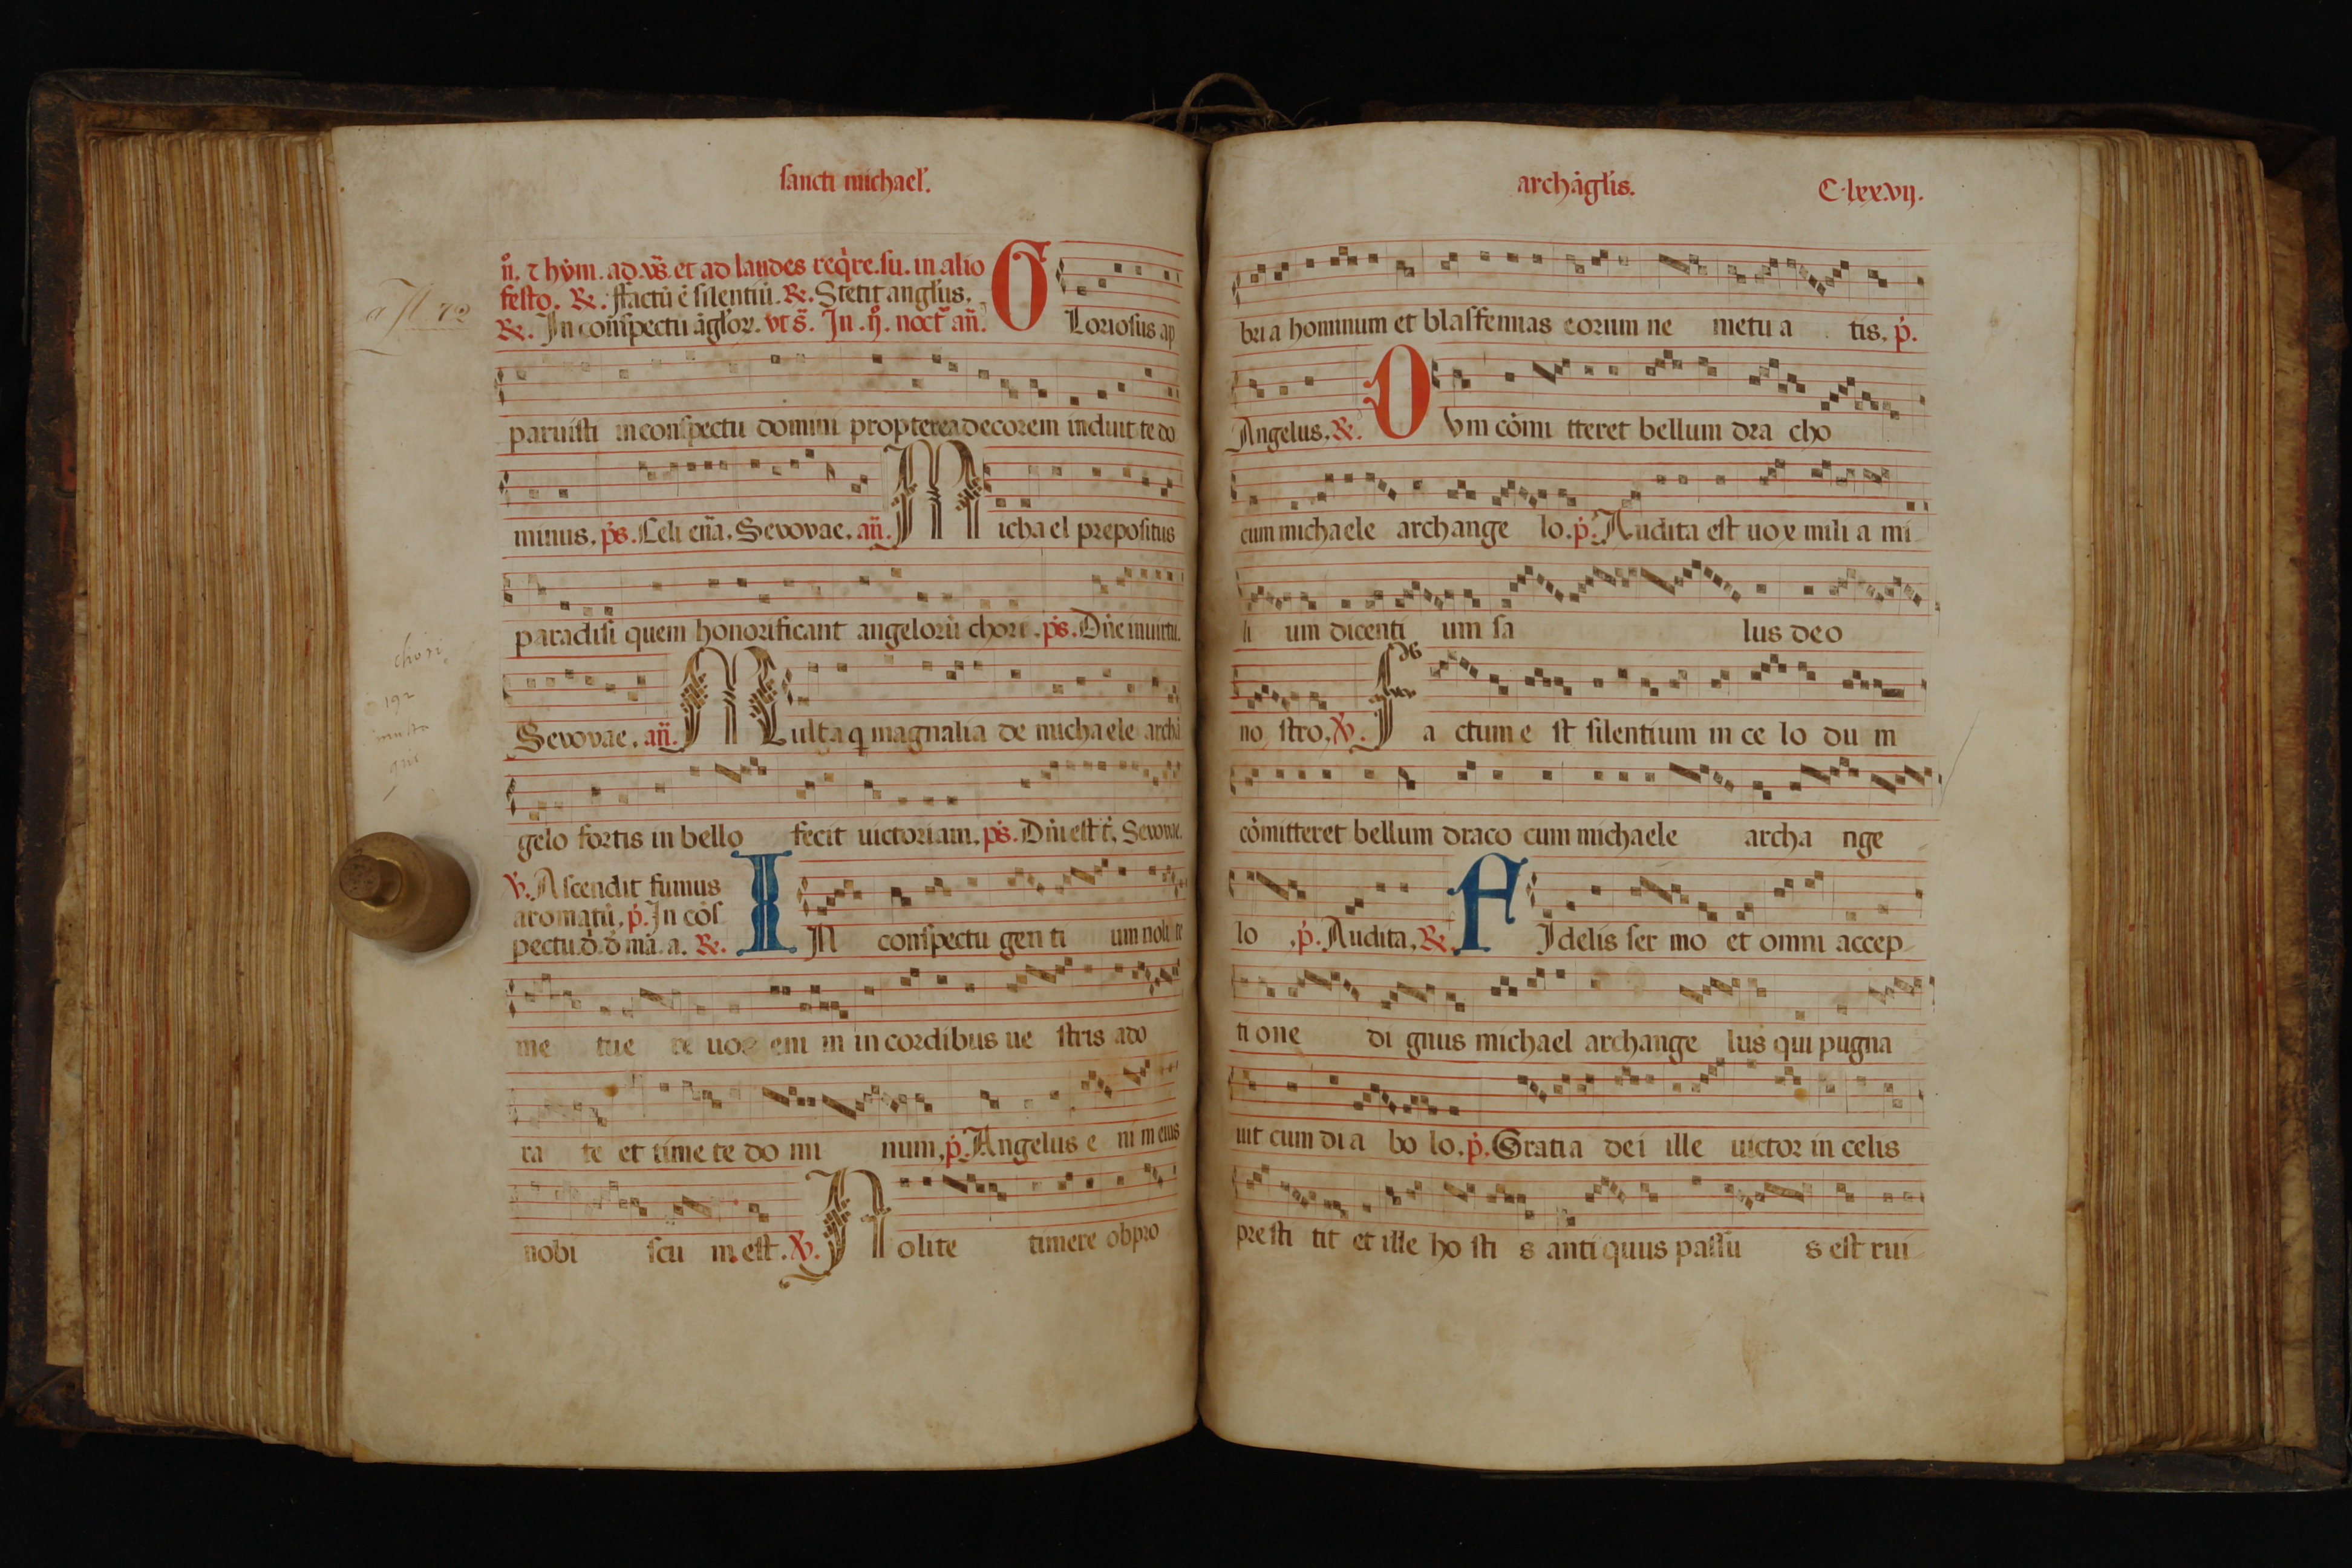 sancti michael̛.
n̄. ⁊ hẏm. ad. v̄s̄. et ad laudes req̇re. su. in alio
festo. ℞. ffactū ē silentiū. ℞. Stetit angl̛us.
℞. In conspectu āgl̛oꝝ. vt s̄. In .ij. noct̄ an̄.
GLoriosus ap
paruisti in conspectu domini propterea decorem induit te do
minus. ps̄. Celi en̄a. Seuouae. an̄. Michael prepositus
paradisi quem honorificant angelorū chori. ps̄. Dn̄e inuirtu.
Seuouae. an̄. Multa q magnalia de michaele archā
gelo fortis in bello fecit uictoriam. ps̄. Dn̄i est t̄. Seuouae.
℣. Ascendit fumus
aromatū. p̄. In cōs
pectu. d̄. d̄ mā. a. ℞.
IN conspectu gen ti um noli te
me tue re uos eni m in cordibus ue stris ado
ra te et time te do mi num. p̄. Angelus e ni m eius
nobi scu m est. ℣. Nolite timere obpro
chori
192
multa
archāgl̛is. C.lxx.vij.
bri a hominum et blasfemias eorum ne metu a tis. p̄.
Angelus. ℞. DVm cōmi tteret bellum dra cho
cum michaele archange lo. p̄. Audita est uox mili a mi
li um dicenti um sa lus deo
no stro. ℣. Fa ctum e st silentium in ce lo du m
cōmitteret bellum draco cum michaele archa nge
lo .p̄. Audita. ℞. FIdelis ser mo et omni accep
ti one di gnus michael archange lus qui pugna
uit cum di a bo lo. p̄. Gratia dei ille uictor in celis
presti tit et ille ho sti s anti quus passu s est rui